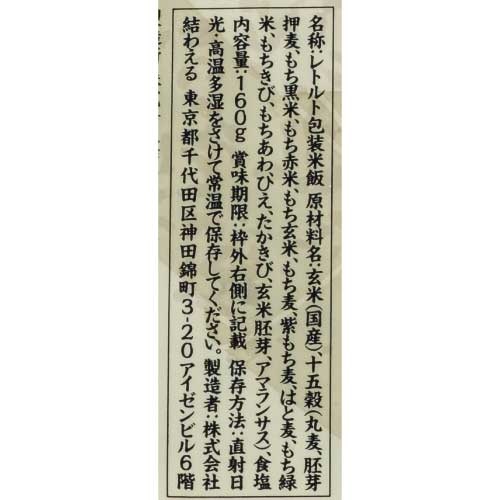 名称:レトルト包装米飯 原材料名:玄米(国産)、十五穀(丸麦、胚芽
押麦、もち黒米、もち赤米、もち玄米、もち麦、紫もち麦、はと麦、もち緑
米、もちきび、もちあわ、ひえ、たかきび、玄米胚芽、アマランサス)、食塩
内容量:160g 賞味期限:枠外右側に記載 保存方法:直射日
光・高温多湿をさけて常温で保存してください。製造者:株式会社
結わえる 東京都千代田区神田錦町3-20アイゼンビル6階